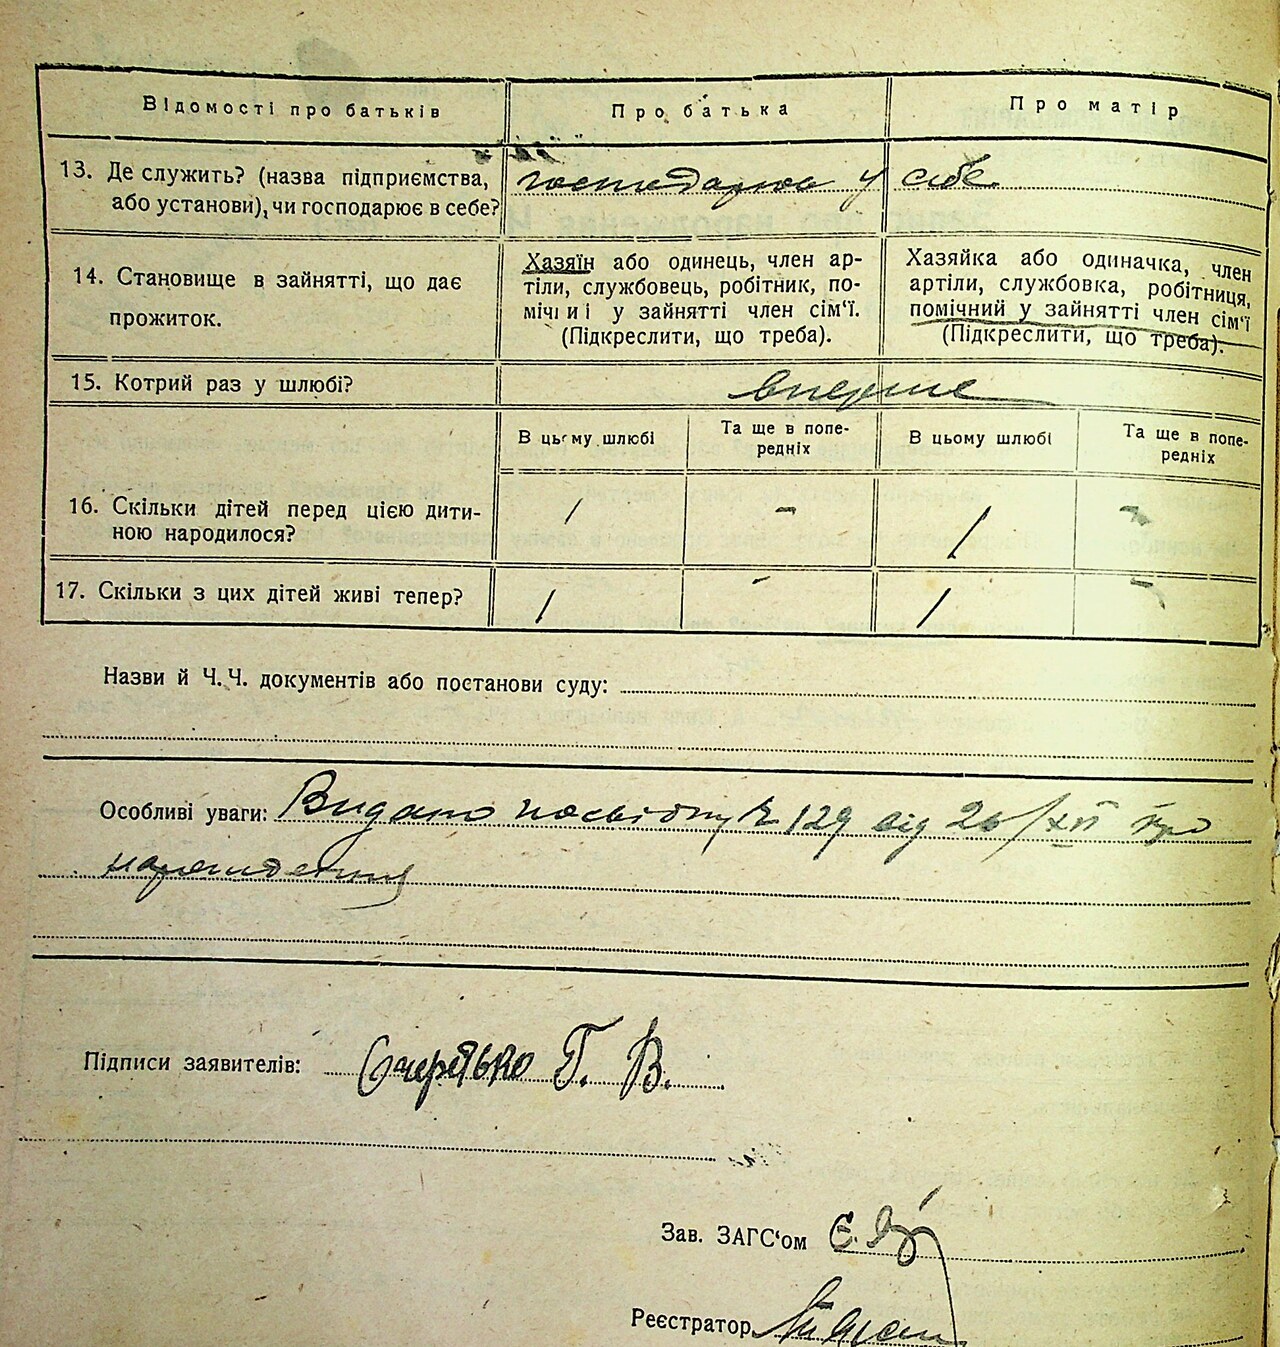 Відомості про батьків
Про батька
Про матір
13. Де служить? (назва підприємства,
або установи), чи господарює в себе?
господарює у себе
14. Становище в зайнятті, що дає
прожиток.
Хазяїн або одинець, член ар-
тіли, службовець, робітник, по-
мічний у зайнятті член сім‘ї.
(Підкреслити, що треба).
Хазяйка або одиначка, член
артіли, службовка, робітниця,
помічний у зайнятті член сім‘ї
(Підкреслити, що треба).
15. Котрий раз у шлюбі?
вперше
В цьому шлюбі
Та ще в попе-
редніх
В цьому шлюбі
Та ще в попе-
редніх
16. Скільки дітей перед цією дити-
ною народилося?
1 - 1 -
17. Скільки з цих дітей живі тепер?
1 - 1 -
Назви й Ч.Ч. документів або постанови суду:
Особливі уваги: Видано посвідку № 129 від 26/XII про
народження
Підписи заявителів: Очеретько Г. В.
Зав. ЗАГС‘ом Є.
Реєстратор